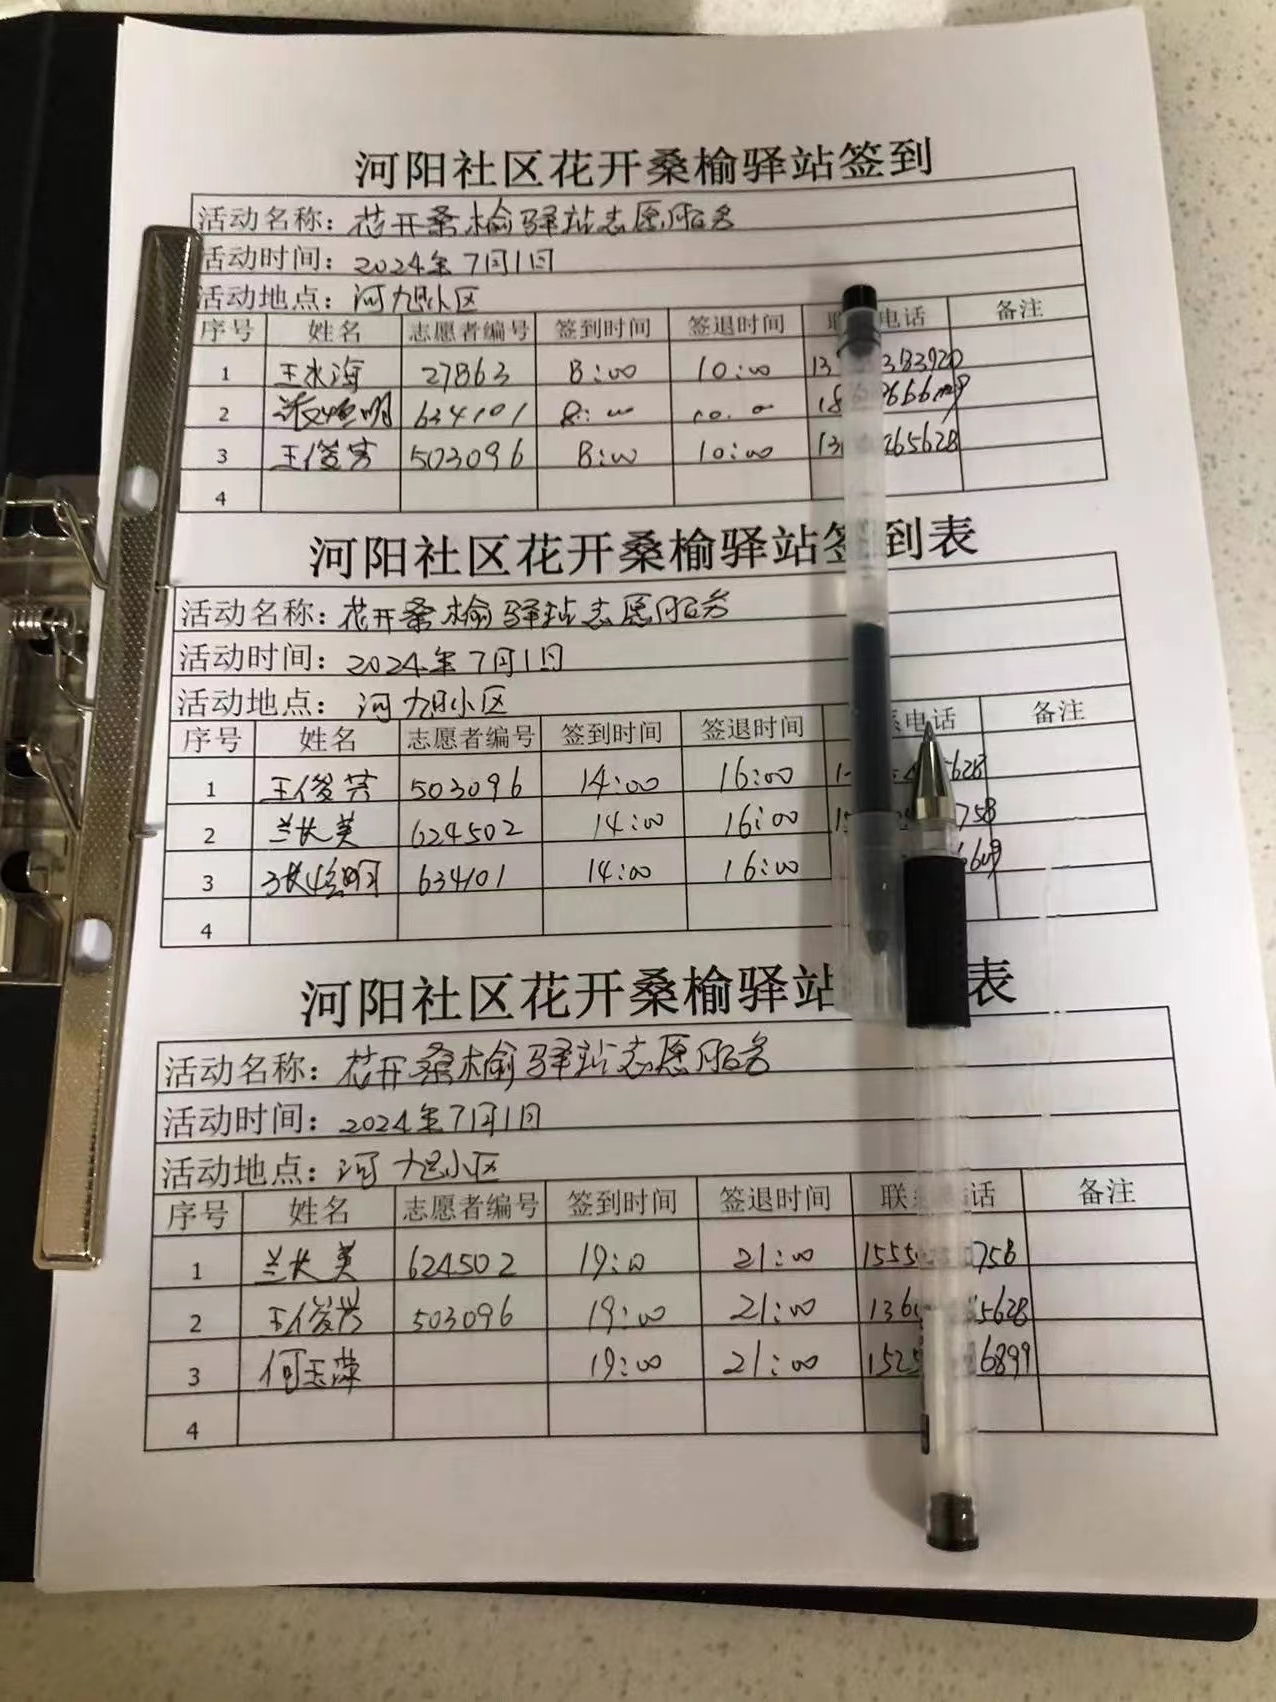 河阳社区花开桑榆驿站签到
活动名称：花开桑榆驿站志愿服务
活动时间：2024年7月1日
活动地点：河旭小区
序号 姓名 志愿者编号 签到时间 签退时间 电话 备注
1 王水海 27863 8:00 10:00
2 634101 8:00 10:00
3 王俊芳 503096 8:00 10:00
4
河阳社区花开桑榆驿站签到表
活动名称：花开桑榆驿站志愿服务
活动时间：2024年7月1日
活动地点：河旭小区
序号 姓名 志愿者编号 签到时间 签退时间 电话 备注
1 王俊芳 503096 14:00 16:00
2 兰长美 624502 14:00 16:00
3 634101 14:00 16:00
4
河阳社区花开桑榆驿站 表
活动名称：花开桑榆驿站志愿服务
活动时间：2024年7月1日
活动地点：河旭小区
序号 姓名 志愿者编号 签到时间 签退时间 联 话 备注
1 兰长美 624502 19:00 21:00 1555 758
2 王俊芳 503096 19:00 21:00 136 5628
3 何玉萍 19:00 21:00 1525 6899
4